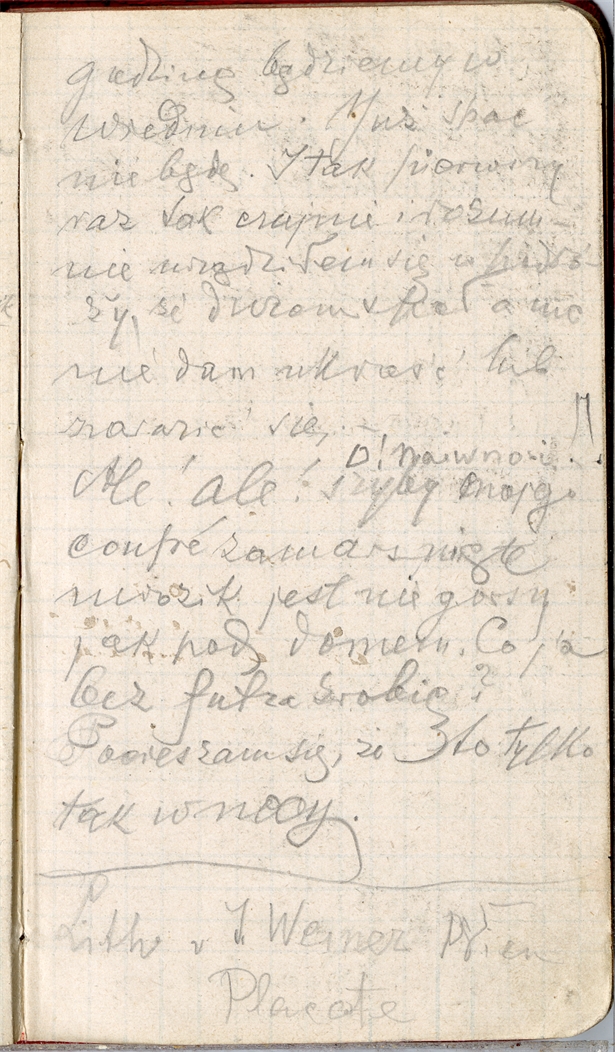 godzinę będziemy w
Wiedniu. Już spać
nie będę. I tak pierwszy
raz tak czujnie i rozum-
nie urządziłem się w podró-
ży, że drzemię a nic
nie dam ukraść lub
narazić się.
O! naiwności.
Ale! ale! szyby mojego
coupé zamarznięte
mrozik jest nie gorszy
jak pod domem. Co ja
bez futra zrobię?
Pocieszam się, że to tylko
tak w nocy.
Lith v J. Weiner Wien
Placate